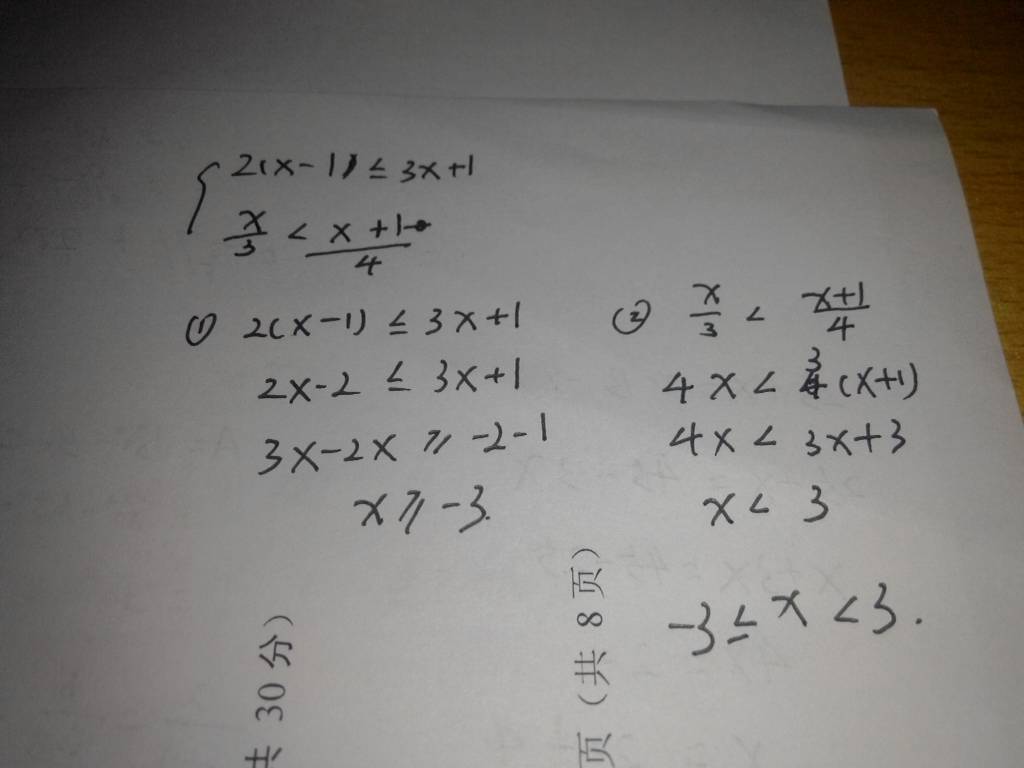 2(x-1) ≤ 3x+1
x/3 < (x+1)/4
① 2(x-1) ≤ 3x+1
2x-2 ≤ 3x+1
3x-2x ≥ -2-1
x ≥ -3.
② x/3 < (x+1)/4
4x < 3(x+1)
4x < 3x+3
x < 3
-3 ≤ x < 3.
共 30 分）
页（共 8 页）